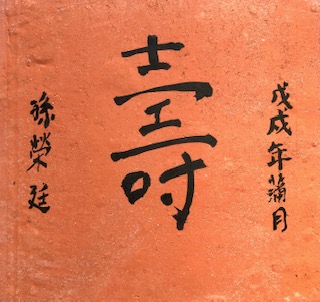 戊戌年蒲月
壽
孫榮廷